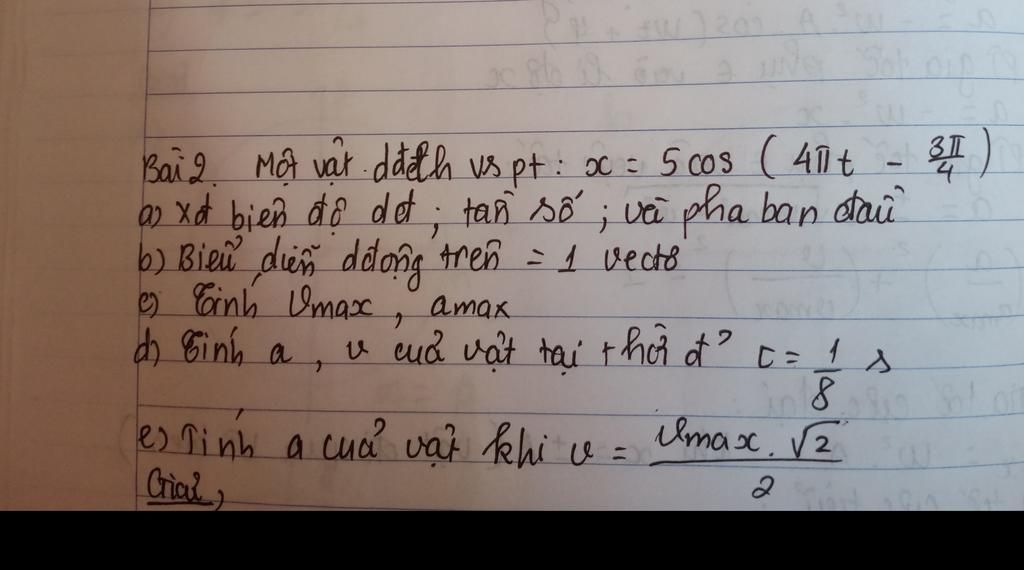 Bài 2. Một vật dđđh vs pt: x = 5 cos ( 4πt - 3π/4 )
a) xđ biên độ dđ ; tần số ; và pha ban đầu
b) Biểu diễn dđộng trên = 1 vectơ
c) Tính vmax , amax
d) Tính a , v của vật tại thời đ² t = 1/8 s
e) Tính a của vật khi v = vmax . √2 / 2
Giải,